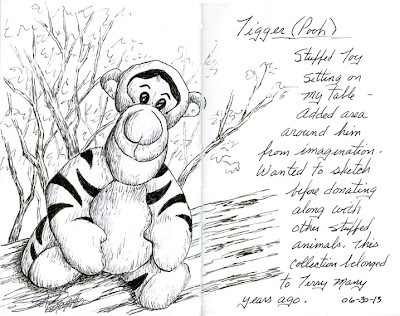 Tigger (Pooh)
Stuffed Toy
Sitting on
my table -
Added area
around him
from imagination.
Wanted to sketch
before donating
along with
other stuffed
animals. This
collection belonged
to Terry many
years ago. 06-30-15